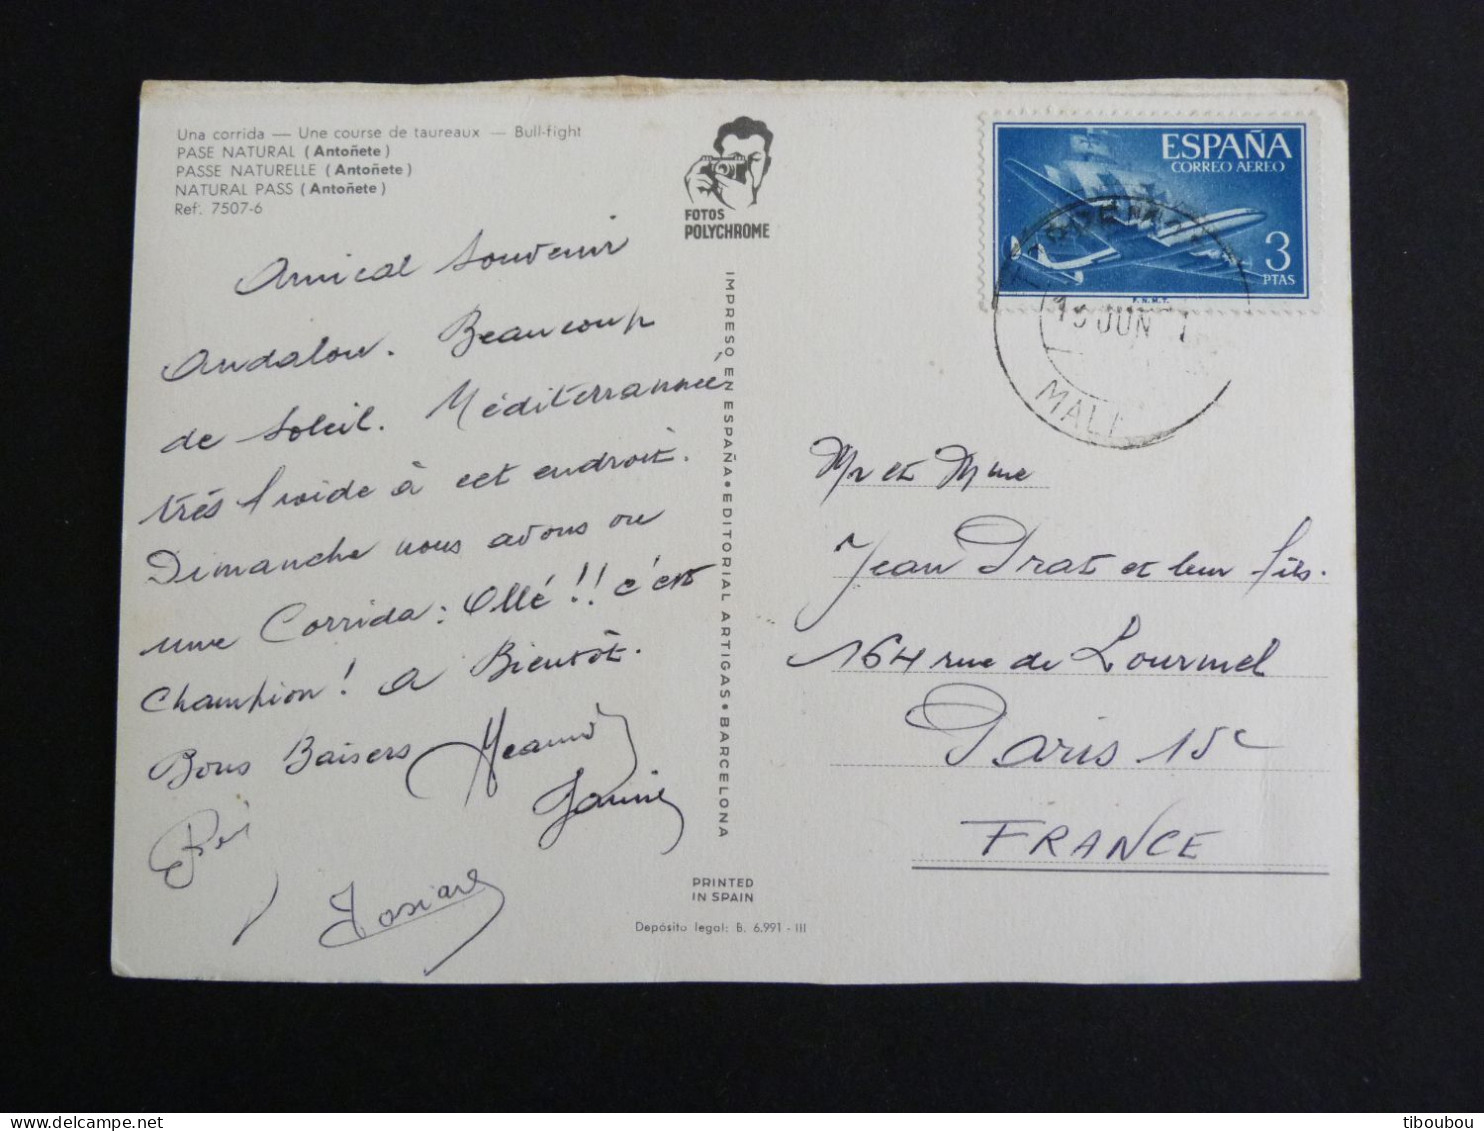 Una corrida — Une course de taureaux — Bull-fight
PASE NATURAL (Antoñete)
PASSE NATURELLE (Antoñete)
NATURAL PASS (Antoñete)
Ref. 7507-6
FOTOS
POLYCHROME
Amical Souvenir
Andalou. Beaucoup
de Soleil. Méditerrannée
très froide à cet endroit.
Dimanche nous avons vu
une Corrida: Ollé!! c'est
Champion! A Bientôt.
Bons Baisers
IMPRESO EN ESPAÑA • EDITORIAL ARTIGAS • BARCELONA
PRINTED
IN SPAIN
Depósito legal: B. 6.991 - III
ESPAÑA
CORREO AEREO
3
PTAS
F.N.M.T.
JUN
Mr et Mme
Jean Prat et leur fils.
164 rue de Lourmel
Paris 15e
FRANCE
tiboubou